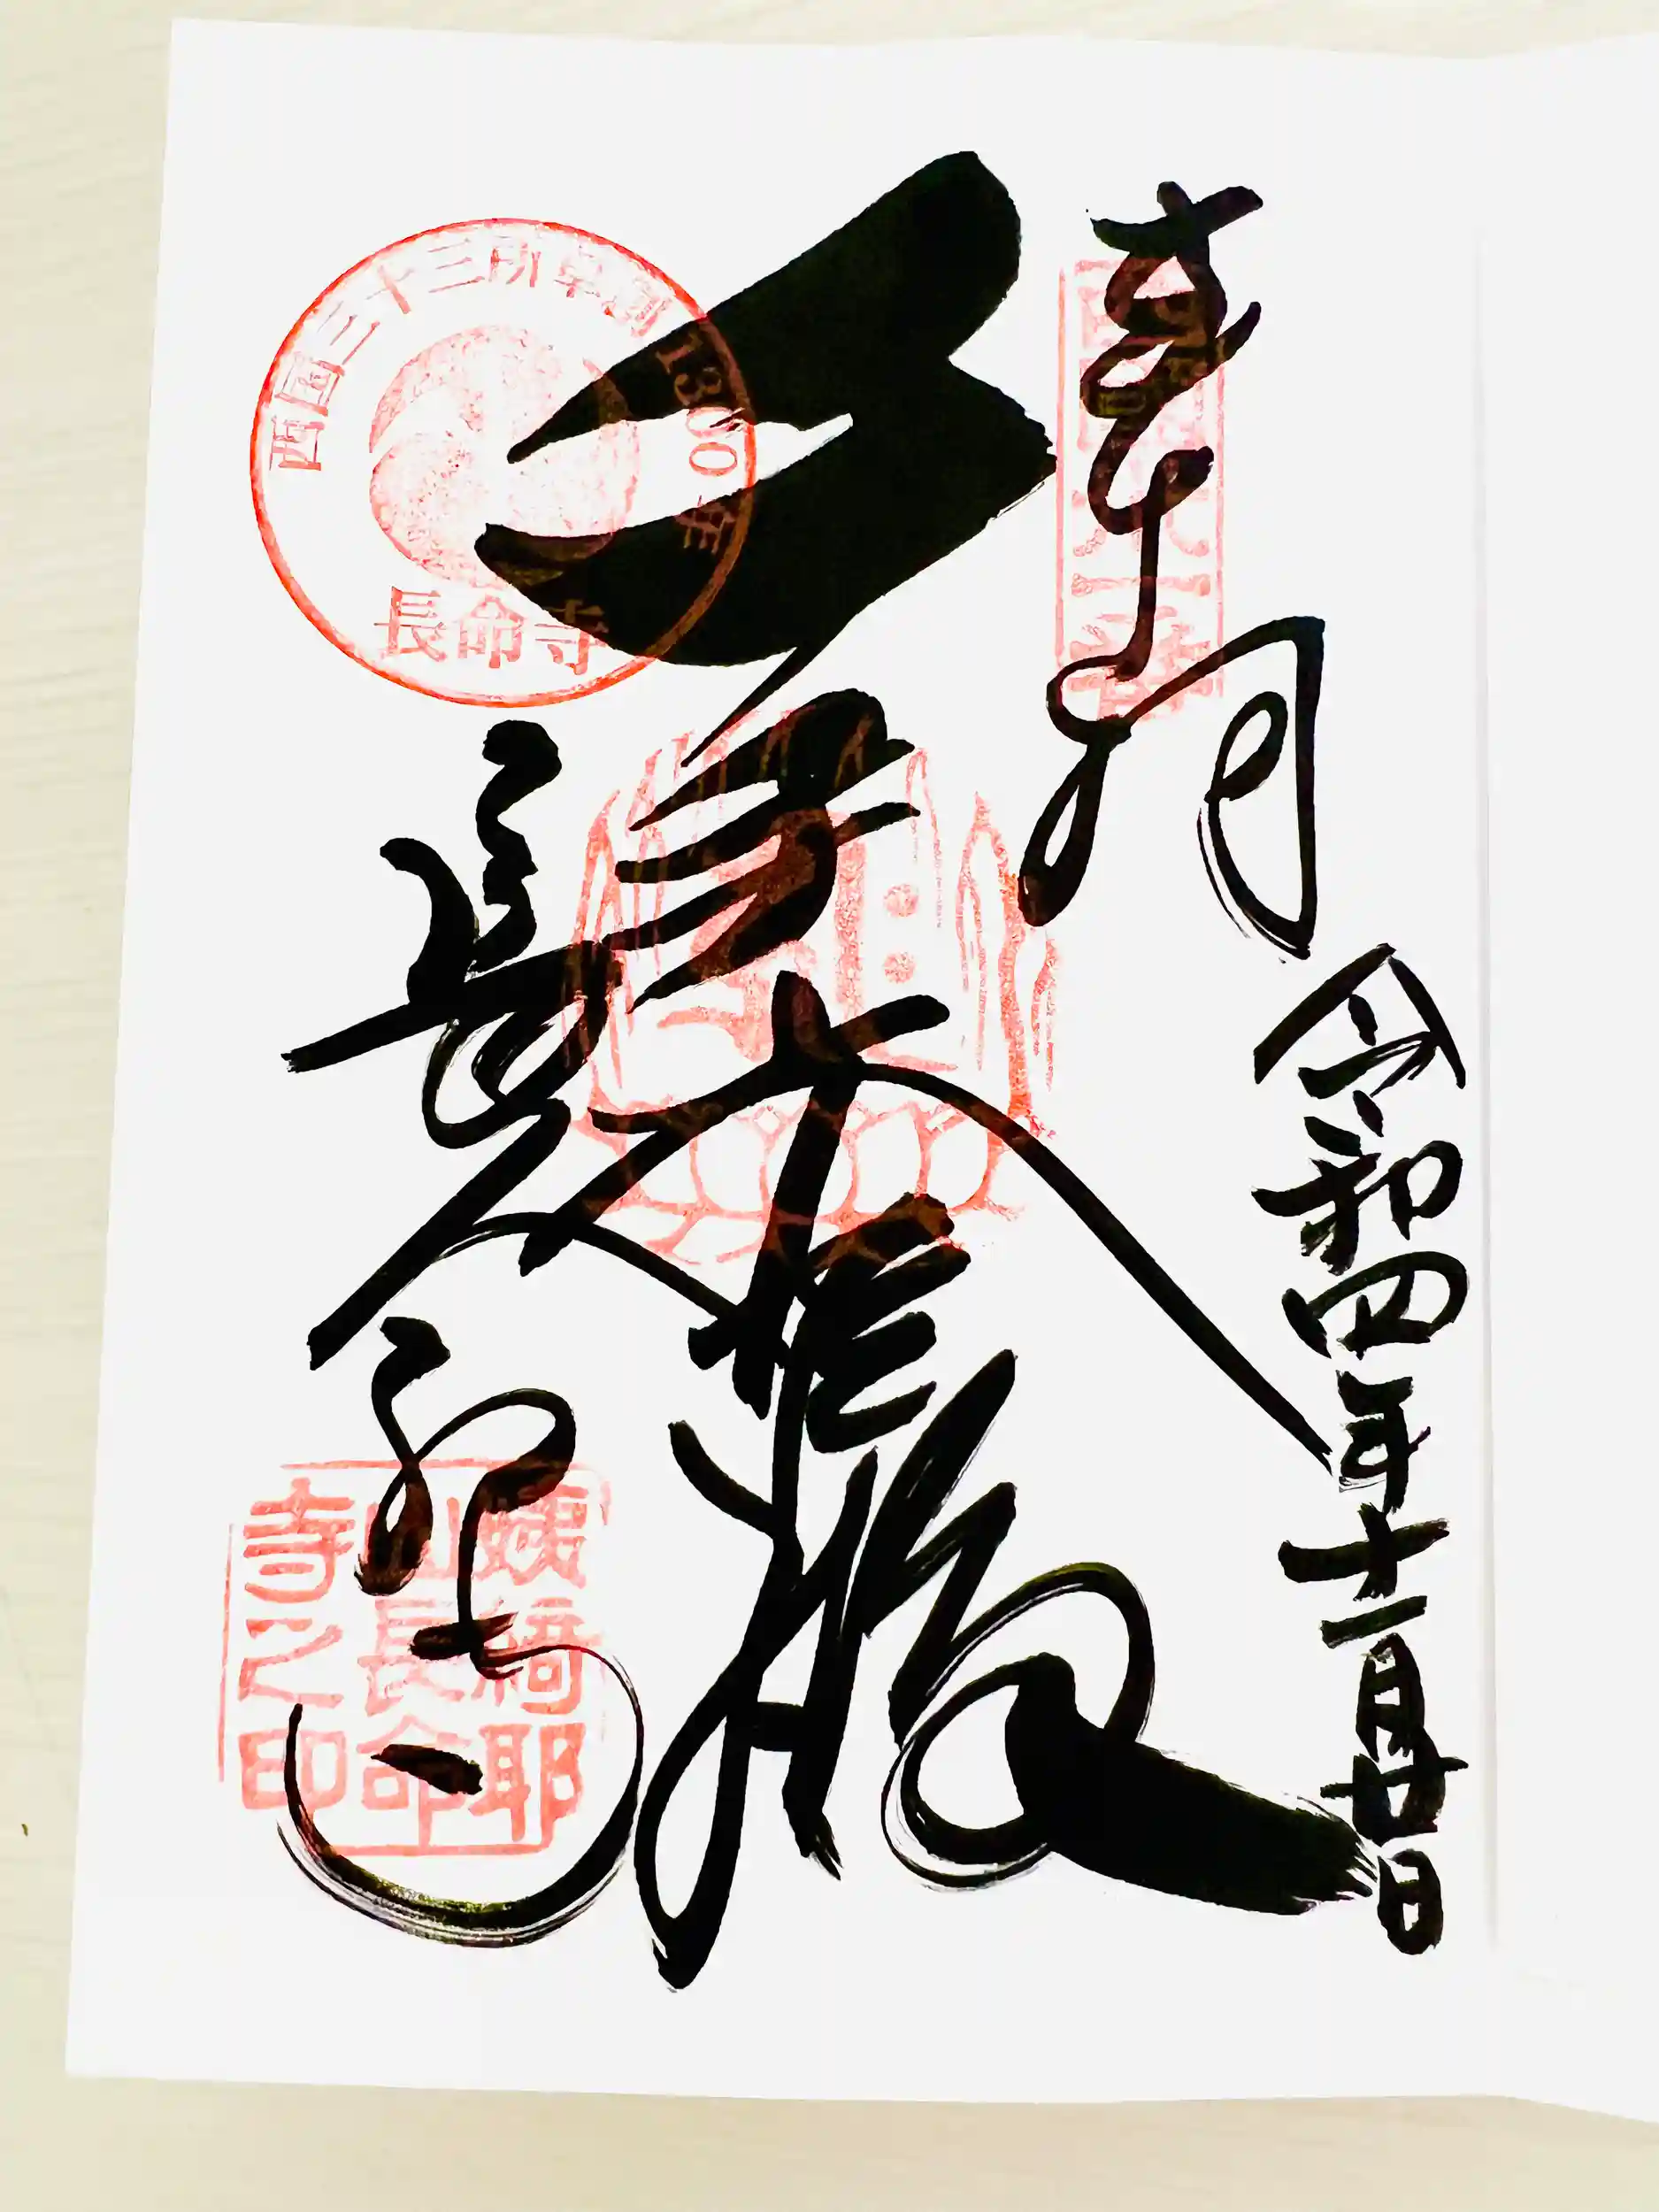 奉拝
令和四年十一月廿日
大悲殿
長命寺
西国三十三所草創1300年
長命寺
姨綺耶山長命寺之印